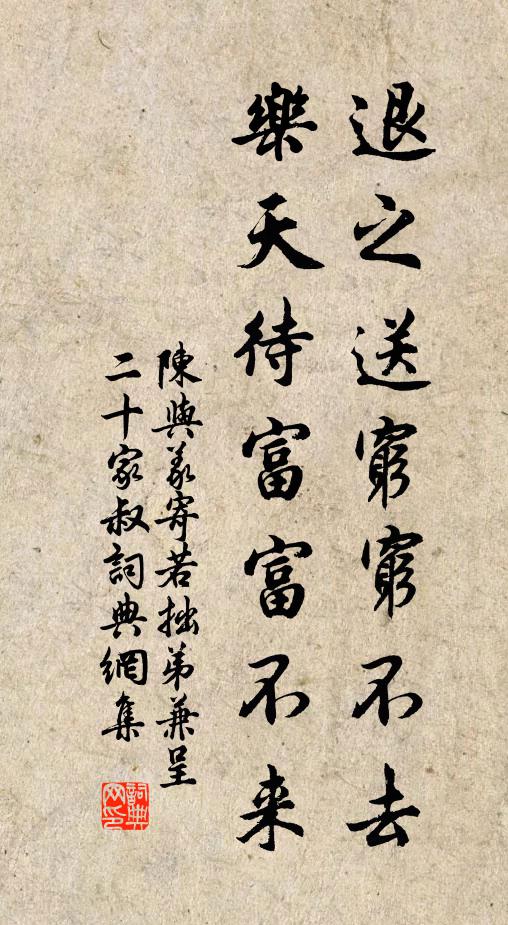 退之送窮窮不去
樂天待富富不来
陳與義寄若拙弟兼呈
二十家叔詞典網集
詞典网印